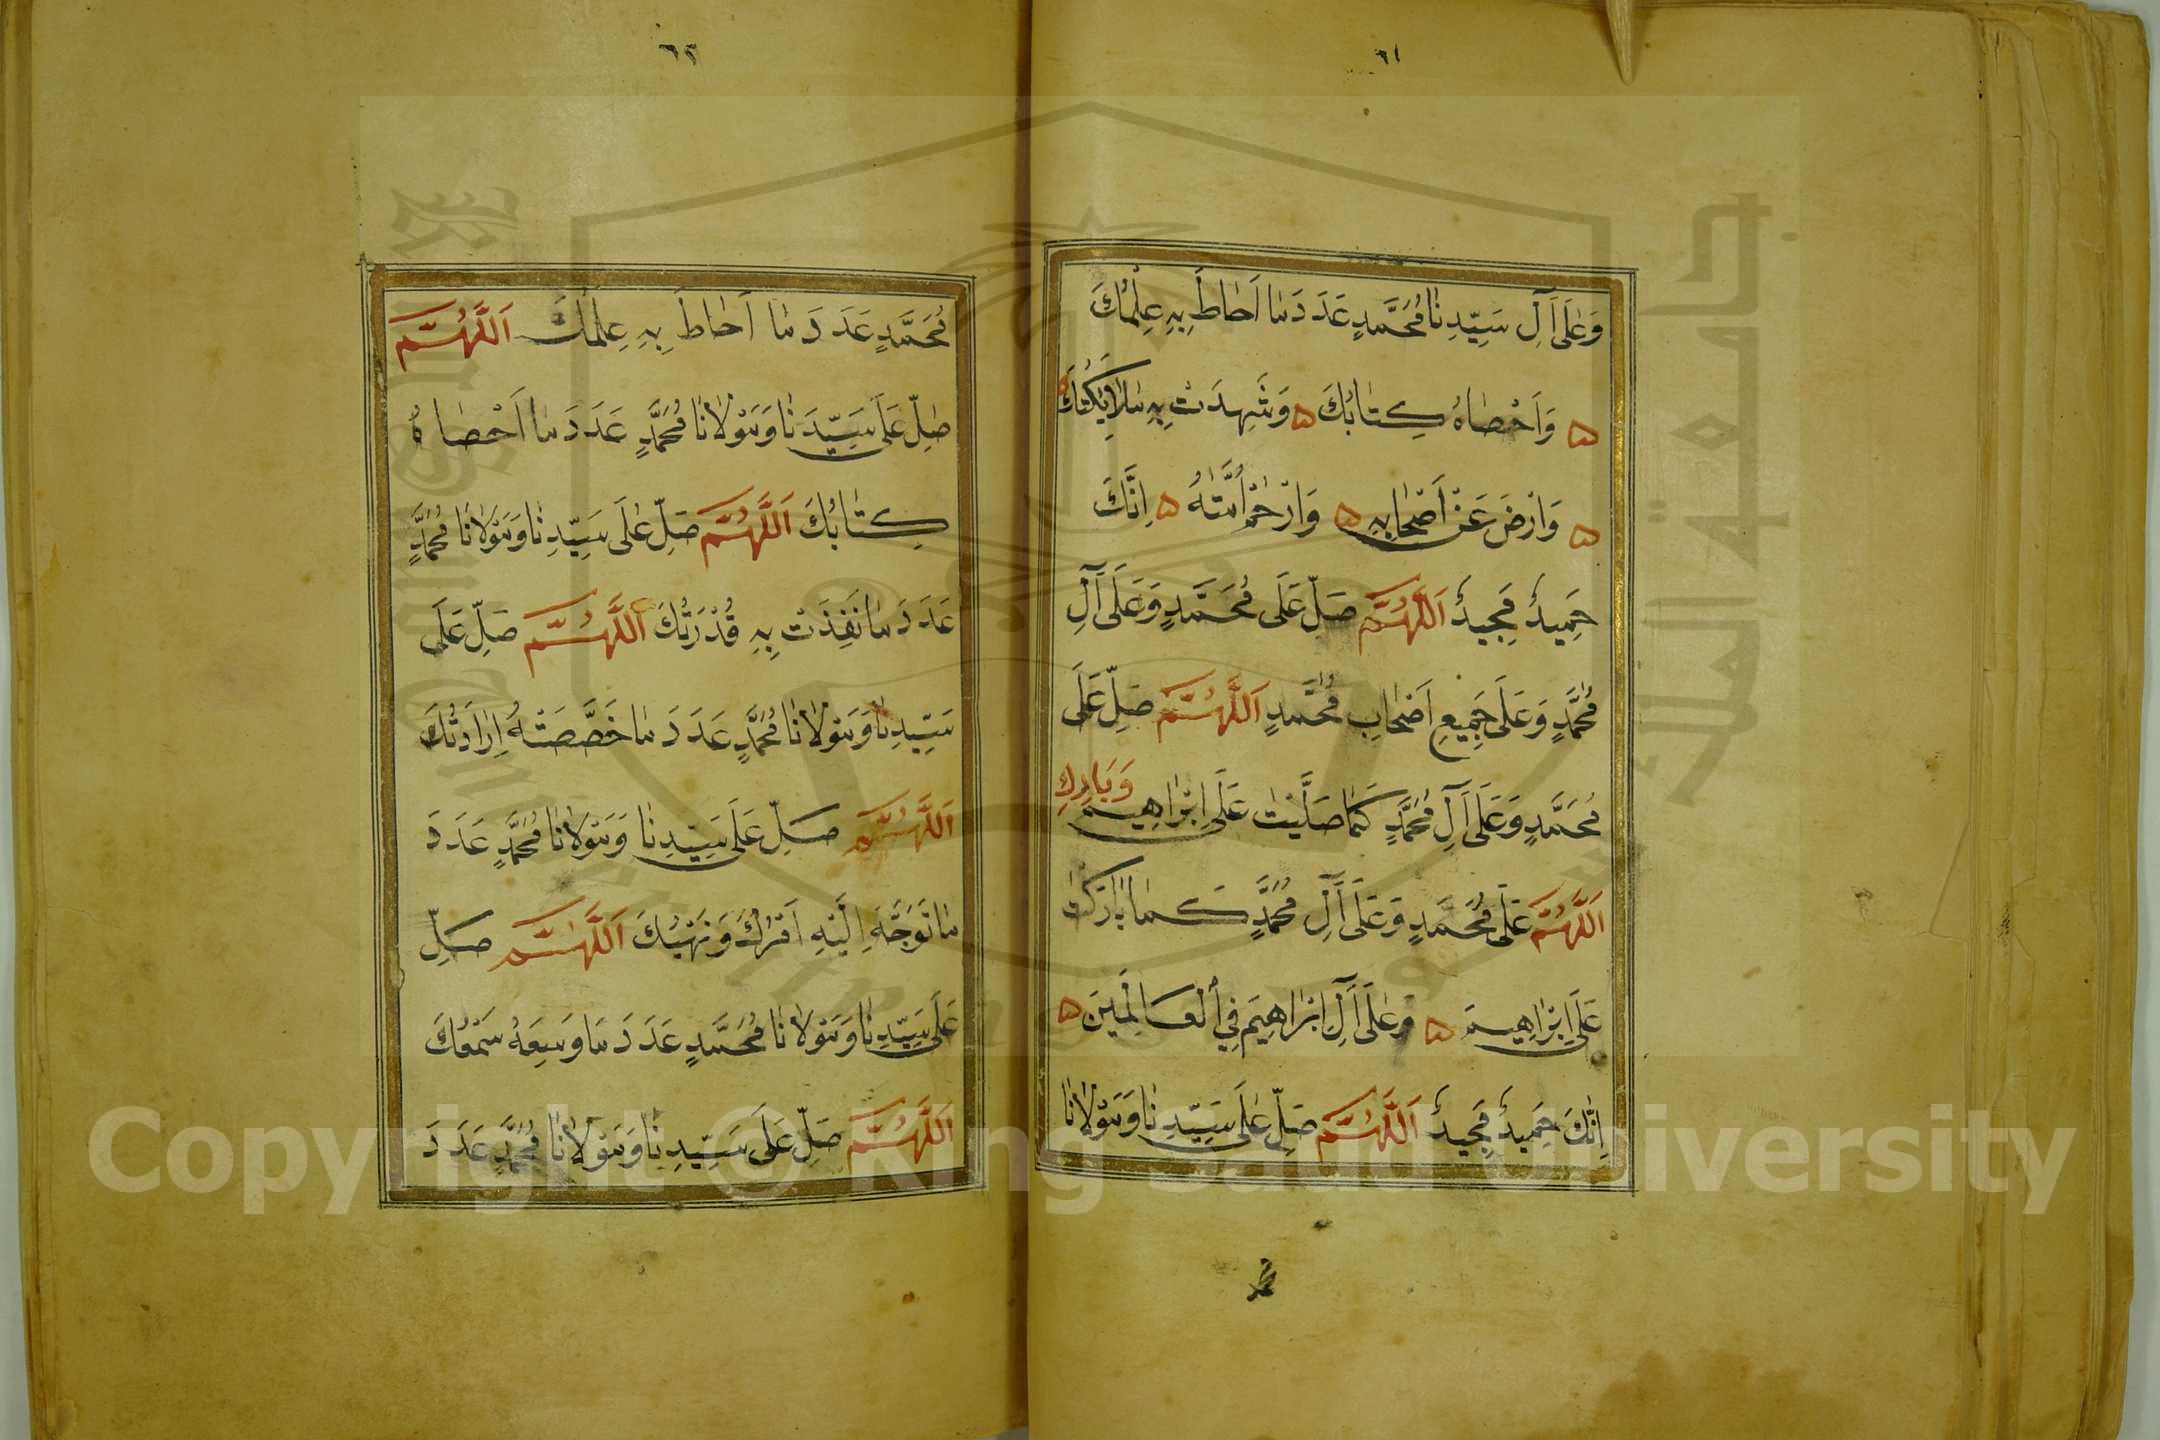 ٦١
وَعَلٰى اٰلِ سَيِّدِنَا مُحَمَّدٍ عَدَدَ مَا اَحَاطَ بِهِ عِلْمُكَ
وَاَحْصَاهُ كِتَابُكَ وَشَهِدَتْ بِهِ مَلَائِكَتُكَ
وَارْضَ عَنْ اَصْحَابِهِ وَارْحَمْ اُمَّتَهُ اِنَّكَ
حَمِيدٌ مَجِيدٌ اَللّٰهُمَّ صَلِّ عَلَى مُحَمَّدٍ وَعَلَى اٰلِ
مُحَمَّدٍ وَعَلَى جَمِيعِ اَصْحَابِ مُحَمَّدٍ اَللّٰهُمَّ صَلِّ عَلَى
مُحَمَّدٍ وَعَلَى اٰلِ مُحَمَّدٍ كَمَا صَلَّيْتَ عَلَى اِبْرَاهِيمَ وَبَارِكِ
اَللّٰهُمَّ عَلَى مُحَمَّدٍ وَعَلَى اٰلِ مُحَمَّدٍ كَمَا بَارَكْتَ
عَلَى اِبْرَاهِيمَ وَعَلٰى اٰلِ اِبْرَاهِيمَ فِي الْعَالَمِينَ
اِنَّكَ حَمِيدٌ مَجِيدٌ اَللّٰهُمَّ صَلِّ عَلٰى سَيِّدِنَا وَمَوْلَانَا
٦٢
مُحَمَّدٍ عَدَدَ مَا اَحَاطَ بِهِ عِلْمُكَ اَللّٰهُمَّ
صَلِّ عَلَى سَيِّدِنَا وَمَوْلَانَا مُحَمَّدٍ عَدَدَ مَا اَحْصَاهُ
كِتَابُكَ اَللّٰهُمَّ صَلِّ عَلٰى سَيِّدِنَا وَمَوْلَانَا مُحَمَّدٍ
عَدَدَ مَا نَفِذَتْ بِهِ قُدْرَتُكَ اَللّٰهُمَّ صَلِّ عَلَى
سَيِّدِنَا وَمَوْلَانَا مُحَمَّدٍ عَدَدَ مَا خَصَّصَتْهُ اِرَادَتُكَ
اَللّٰهُمَّ صَلِّ عَلَى سَيِّدِنَا وَمَوْلَانَا مُحَمَّدٍ عَدَدَ
مَا تَوَجَّهَ اِلَيْهِ اَمْرُكَ وَنَهْيُكَ اَللّٰهُمَّ صَلِّ
عَلَى سَيِّدِنَا وَمَوْلَانَا مُحَمَّدٍ عَدَدَ مَا وَسِعَهُ سَمْعُكَ
اَللّٰهُمَّ صَلِّ عَلَى سَيِّدِنَا وَمَوْلَانَا مُحَمَّدٍ عَدَدَ
Copyright © King Saud University